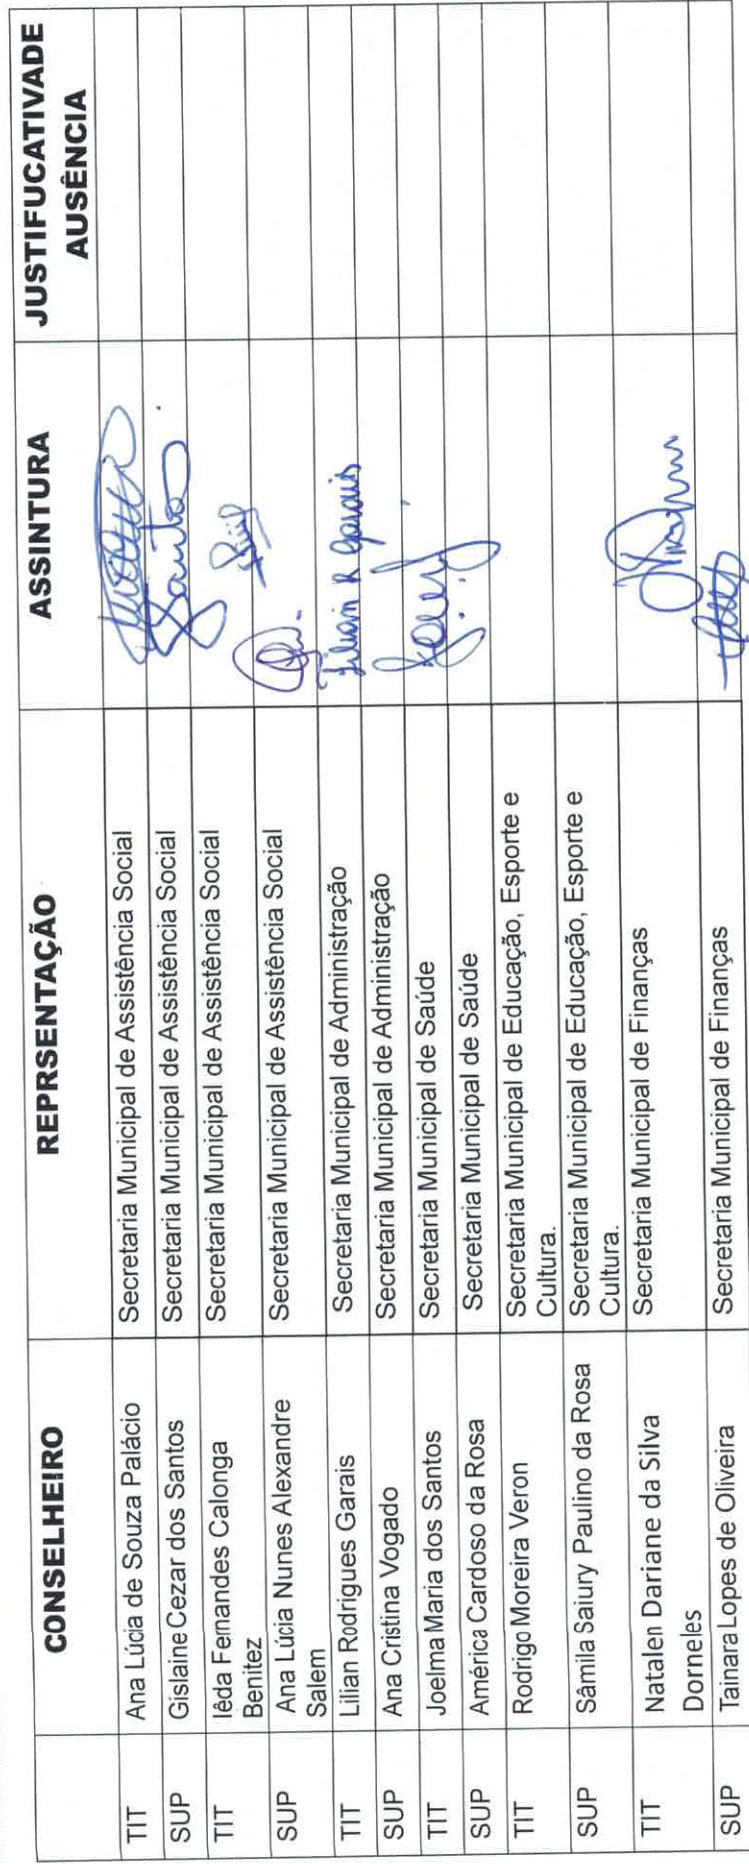 CONSELHEIRO REPRSENTAÇÃO ASSINTURA JUSTIFUCATIVADE
AUSÊNCIA
TIT Ana Lúcia de Souza Palácio Secretaria Municipal de Assistência Social
SUP Gislaine Cezar dos Santos Secretaria Municipal de Assistência Social Santos
TIT Iêda Fernandes Calonga Secretaria Municipal de Assistência Social
Benitez
SUP Ana Lúcia Nunes Alexandre Secretaria Municipal de Assistência Social
Salem
TIT Lilian Rodrigues Garais Secretaria Municipal de Administração Lilian R Garais
SUP Ana Cristina Vogado Secretaria Municipal de Administração
TIT Joelma Maria dos Santos Secretaria Municipal de Saúde
SUP América Cardoso da Rosa Secretaria Municipal de Saúde
TIT Rodrigo Moreira Veron Secretaria Municipal de Educação, Esporte e
Cultura.
SUP Sâmila Saiury Paulino da Rosa Secretaria Municipal de Educação, Esporte e
Cultura.
TIT Natalen Dariane da Silva Secretaria Municipal de Finanças
Dorneles
SUP Tainara Lopes de Oliveira Secretaria Municipal de Finanças